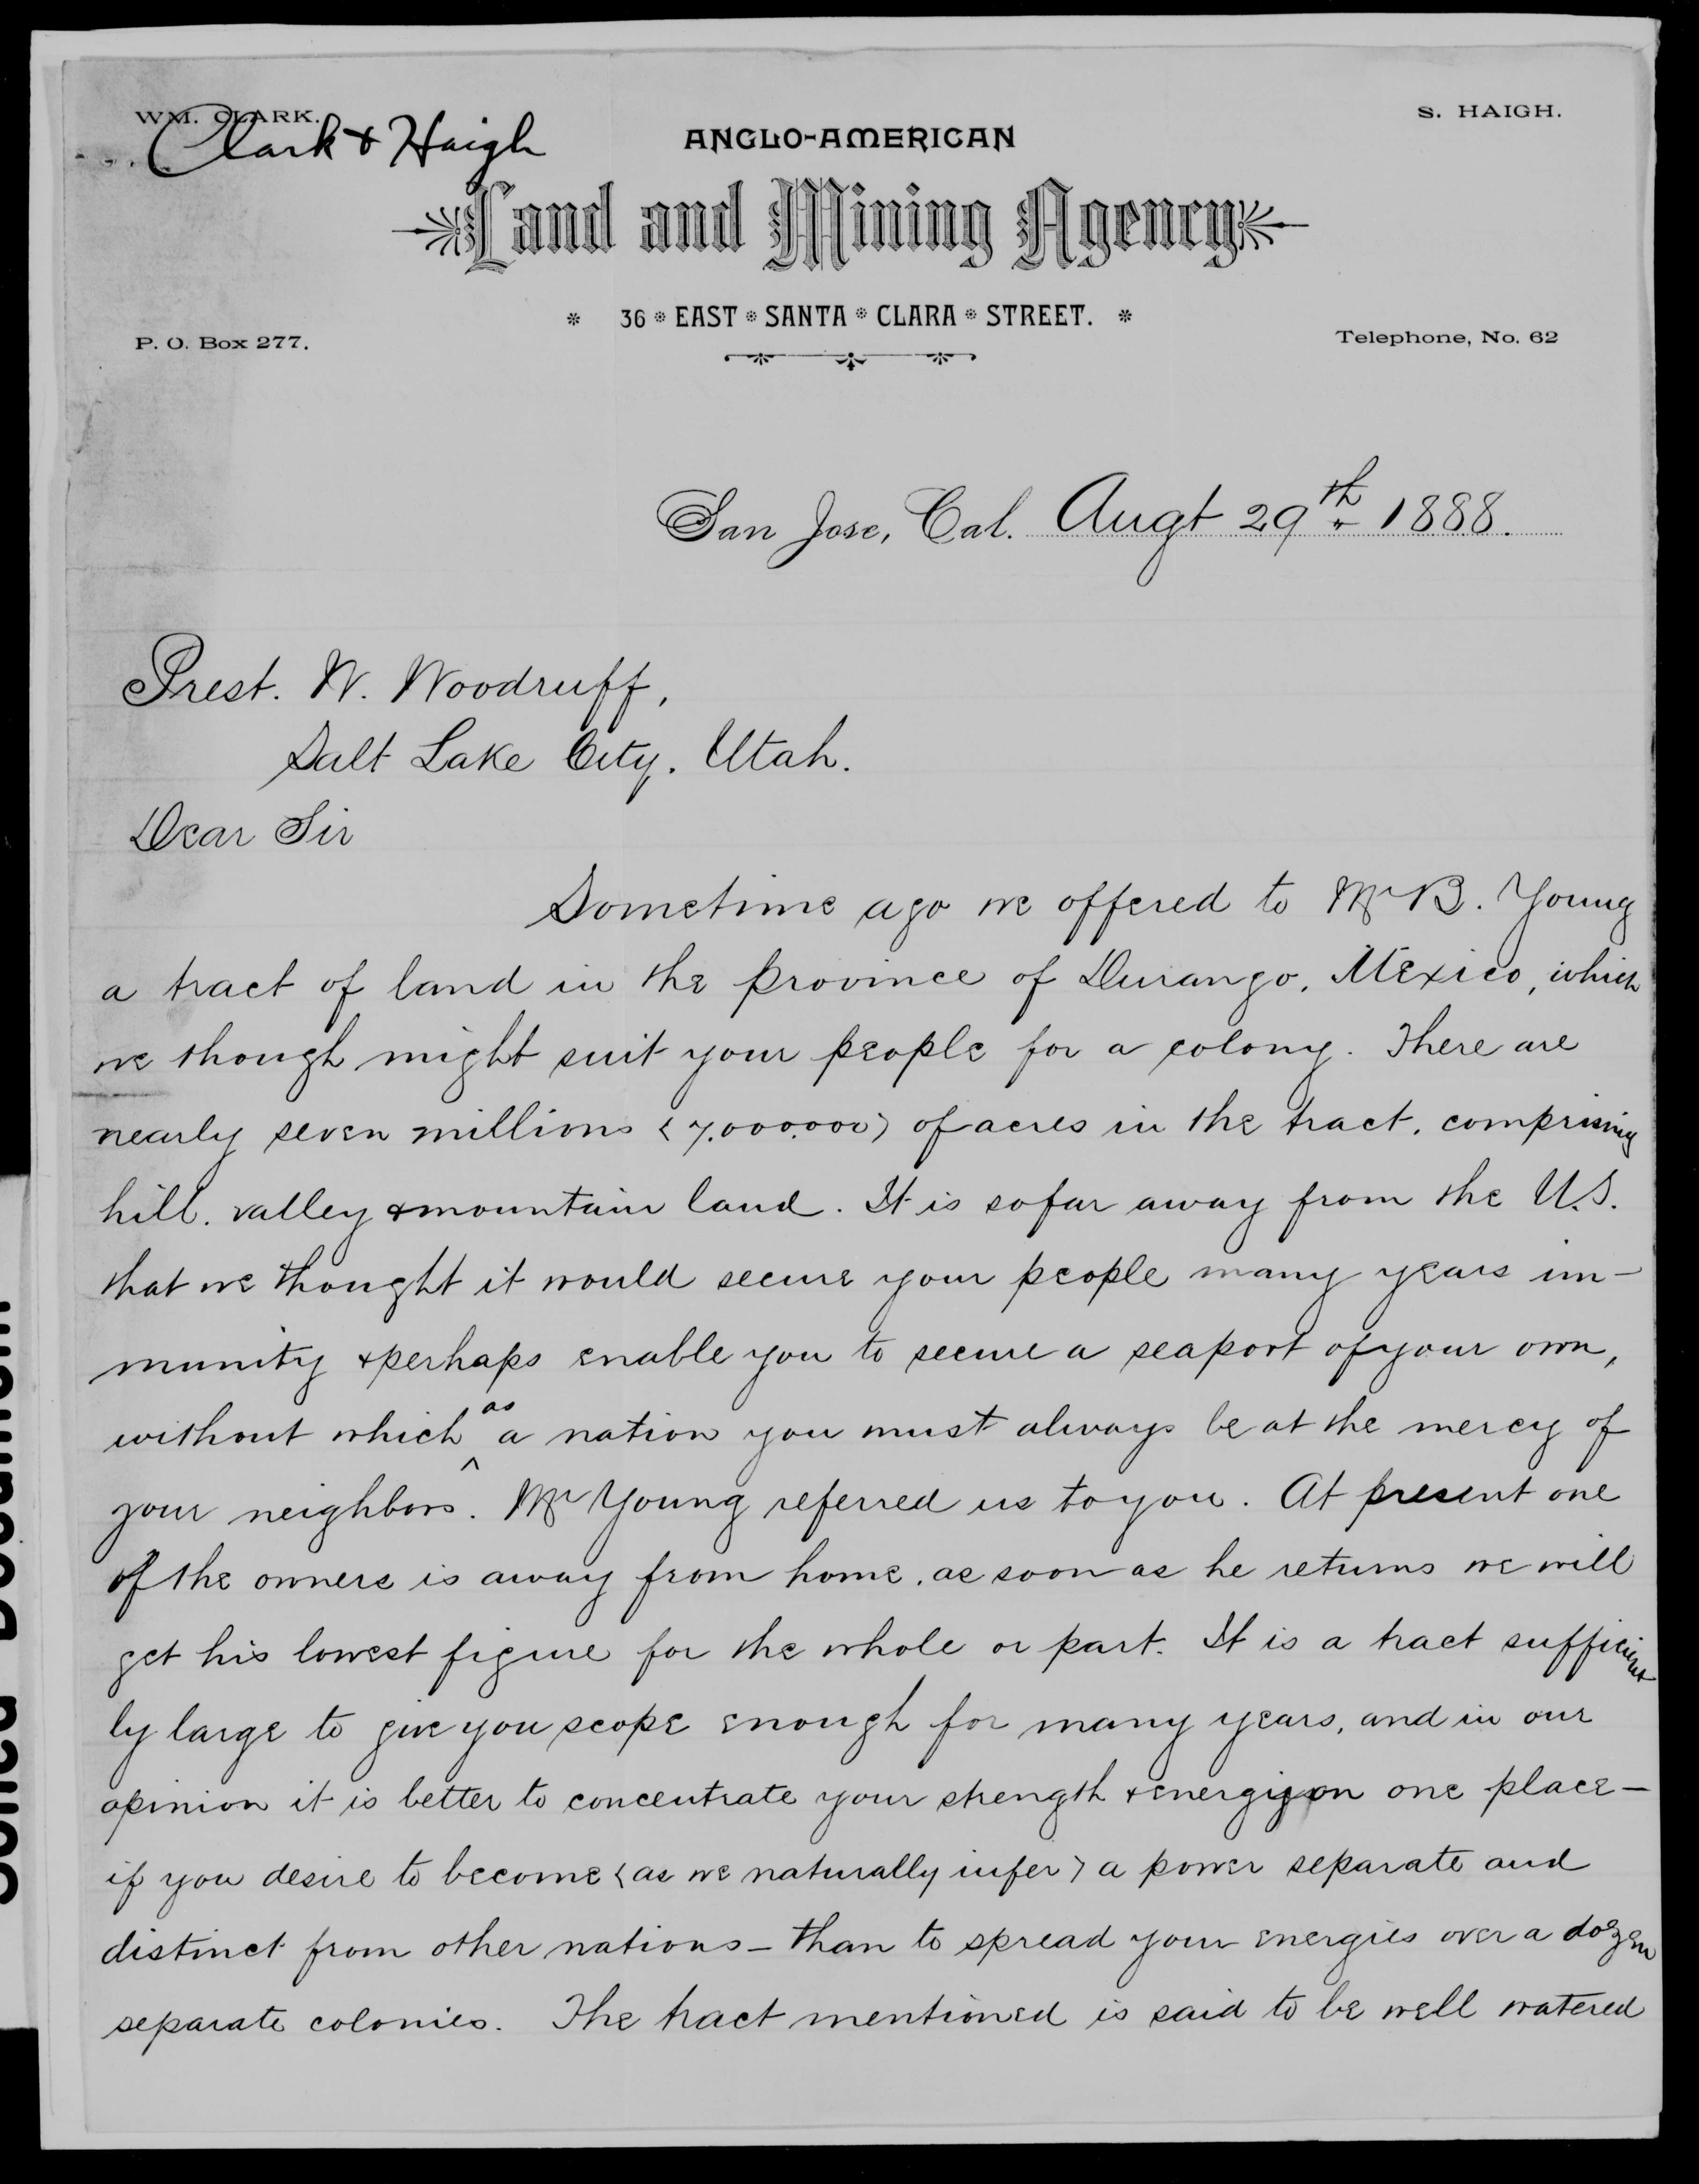 WM. CLARK.
Clark & Haigh
S. HAIGH.
ANGLO-AMERICAN
Land and Mining Agency
36 EAST SANTA CLARA STREET.
P. O. Box 277.
Telephone, No. 62
San Jose, Cal. Augt 29th 1888.
Prest. W. Woodruff,
Salt Lake City. Utah.
Dear Sir
Sometime ago we offered to Mr B. Young
a tract of land in the province of Durango, Mexico, which
we though might suit your people for a colony. There are
nearly seven millions (7,000,000) of acres in the tract, comprising
hill, valley & mountain land. It is so far away from the U.S.
that we thought it would secure your people many years im-
munity & perhaps enable you to secure a seaport of your own,
without which as a nation you must always be at the mercy of
your neighbors. Mr Young referred us to you. At present one
of the owners is away from home, as soon as he returns we will
get his lowest figure for the whole or part. It is a tract sufficient
ly large to give you scope enough for many years, and in our
opinion it is better to concentrate your strength & energy on one place—
if you desire to become (as we naturally infer) a power separate and
distinct from other nations — than to spread your energies over a dozen
separate colonies. The tract mentioned is said to be well watered